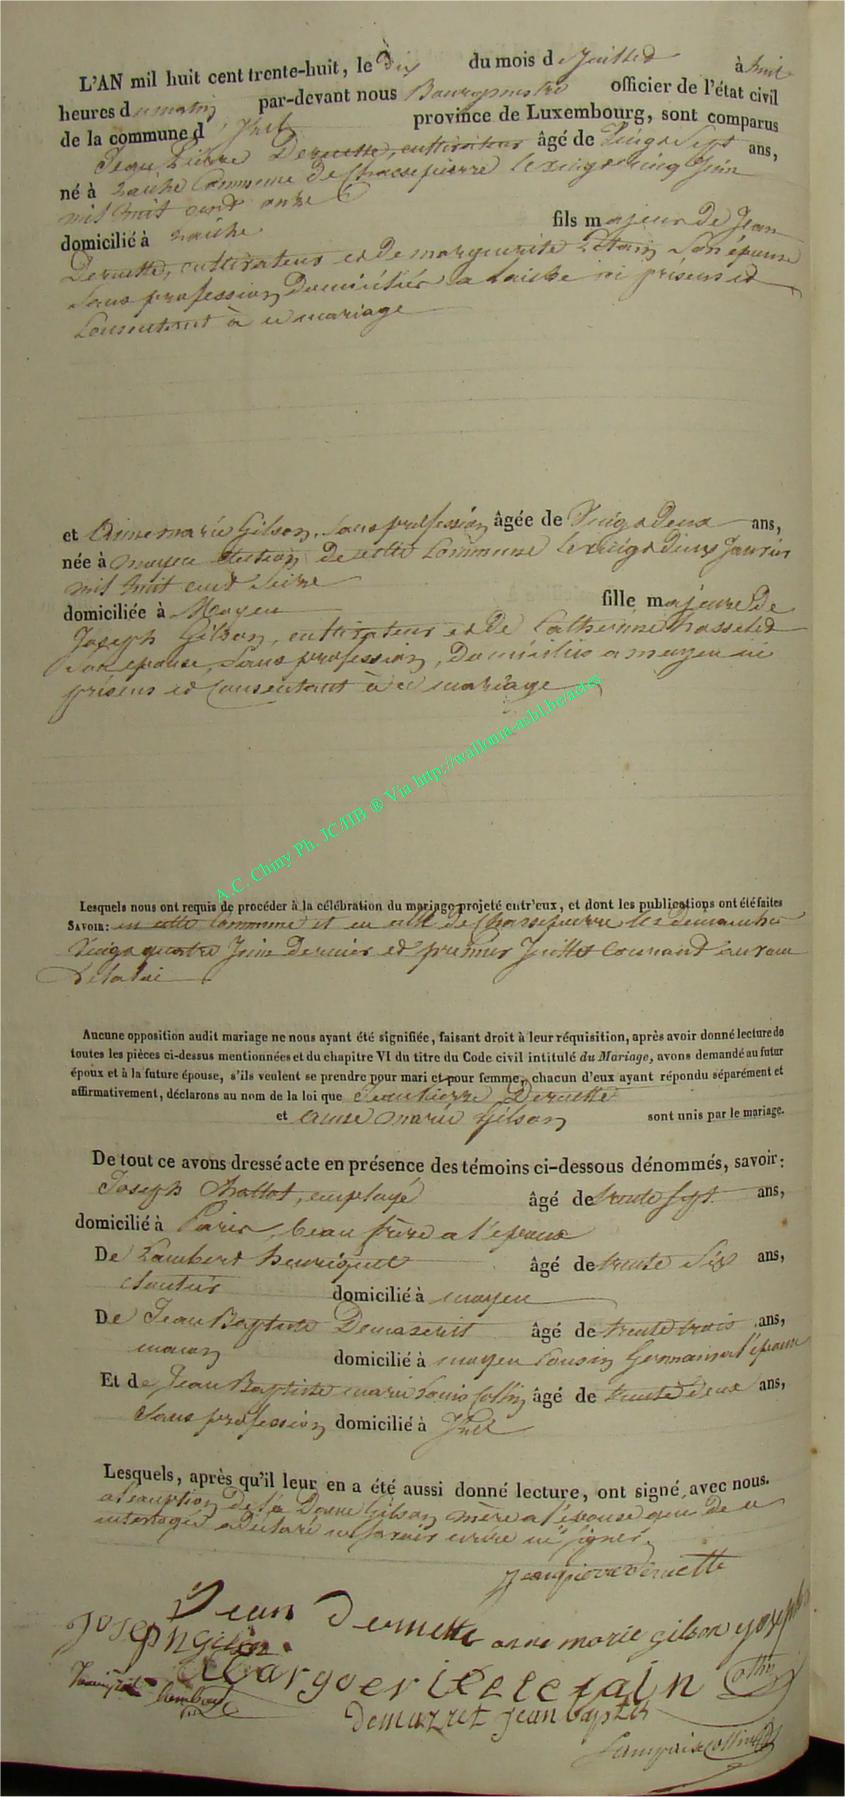 L'AN mil huit cent trente-huit, le dix du mois de Juillet à huit
heures du matin par-devant nous Bourgmestre officier de l'état civil
de la commune d'Jzel province de Luxembourg, sont comparus
Jean Pierre Dernette, cultivateur âgé de Vingt Sept ans,
né à Laiche Commune de Chassepierre le vingt cinq Juin
mil huit cent onze
domicilié à Laiche fils majeur de Jean
Dernette, cultivateur et de marguerite son épouse
sans profession Domiciliés a Laiche ici présens et
Consentant à ce mariage
et Anne marie Gilson, sans profession âgée de Vingt Deux ans,
née à moyen section de cette Commune le vingt Janvier
mil huit cent seize
domiciliée à Moyen fille majeure De
Joseph Gilson, cultivateur et De Catherine
son épouse, sans profession, Domiciliés a moyen ici
présens et Consentant à ce mariage
A.C. Chiny Ph. JC/HB ® Via http://wallonia-asbl.be/actes
Lesquels nous ont requis de procéder à la célébration du mariage projeté entr'eux, et dont les publications ont été faites
SAVOIR: en cette Commune et en celle de Chassepierre les dimanches
Vingt quatre Juin Dernier et premier Juillet courant
Aucune opposition audit mariage ne nous ayant été signifiée, faisant droit à leur réquisition, après avoir donné lecture de
toutes les pièces ci-dessus mentionnées et du chapitre VI du titre du Code civil intitulé du Mariage, avons demandé au futur
époux et à la future épouse, s'ils veulent se prendre pour mari et pour femme, chacun d'eux ayant répondu séparément et
affirmativement, déclarons au nom de la loi que Jean Pierre Dernette
et Anne marie Gilson sont unis par le mariage.
De tout ce avons dressé acte en présence des témoins ci-dessous dénommés, savoir:
Joseph employé âgé de trente sept ans,
domicilié à Paris, beau frère a l'epoux
De Lambert henriquet âgé de trente Six ans,
domicilié à moyen
De Jean Baptiste Demazeret âgé de trente trois ans,
maçon domicilié à moyen Cousin Germain a l'épouse
Et de Jean Baptiste marie Louis Collin âgé de trente deux ans,
Sans profession domicilié à Jzel
Lesquels, après qu'il leur en a été aussi donné lecture, ont signé avec nous.
a l'exception De la Dame Gilson mère a l'épouse qui De ce
interrogée a Déclaré ne savoir écrire ni signer.
Jean pierre dernette
Jean Dernette anne marie gilson
Joseph gilson
Marguerite letain Collin
Lambert
demazret jean baptis